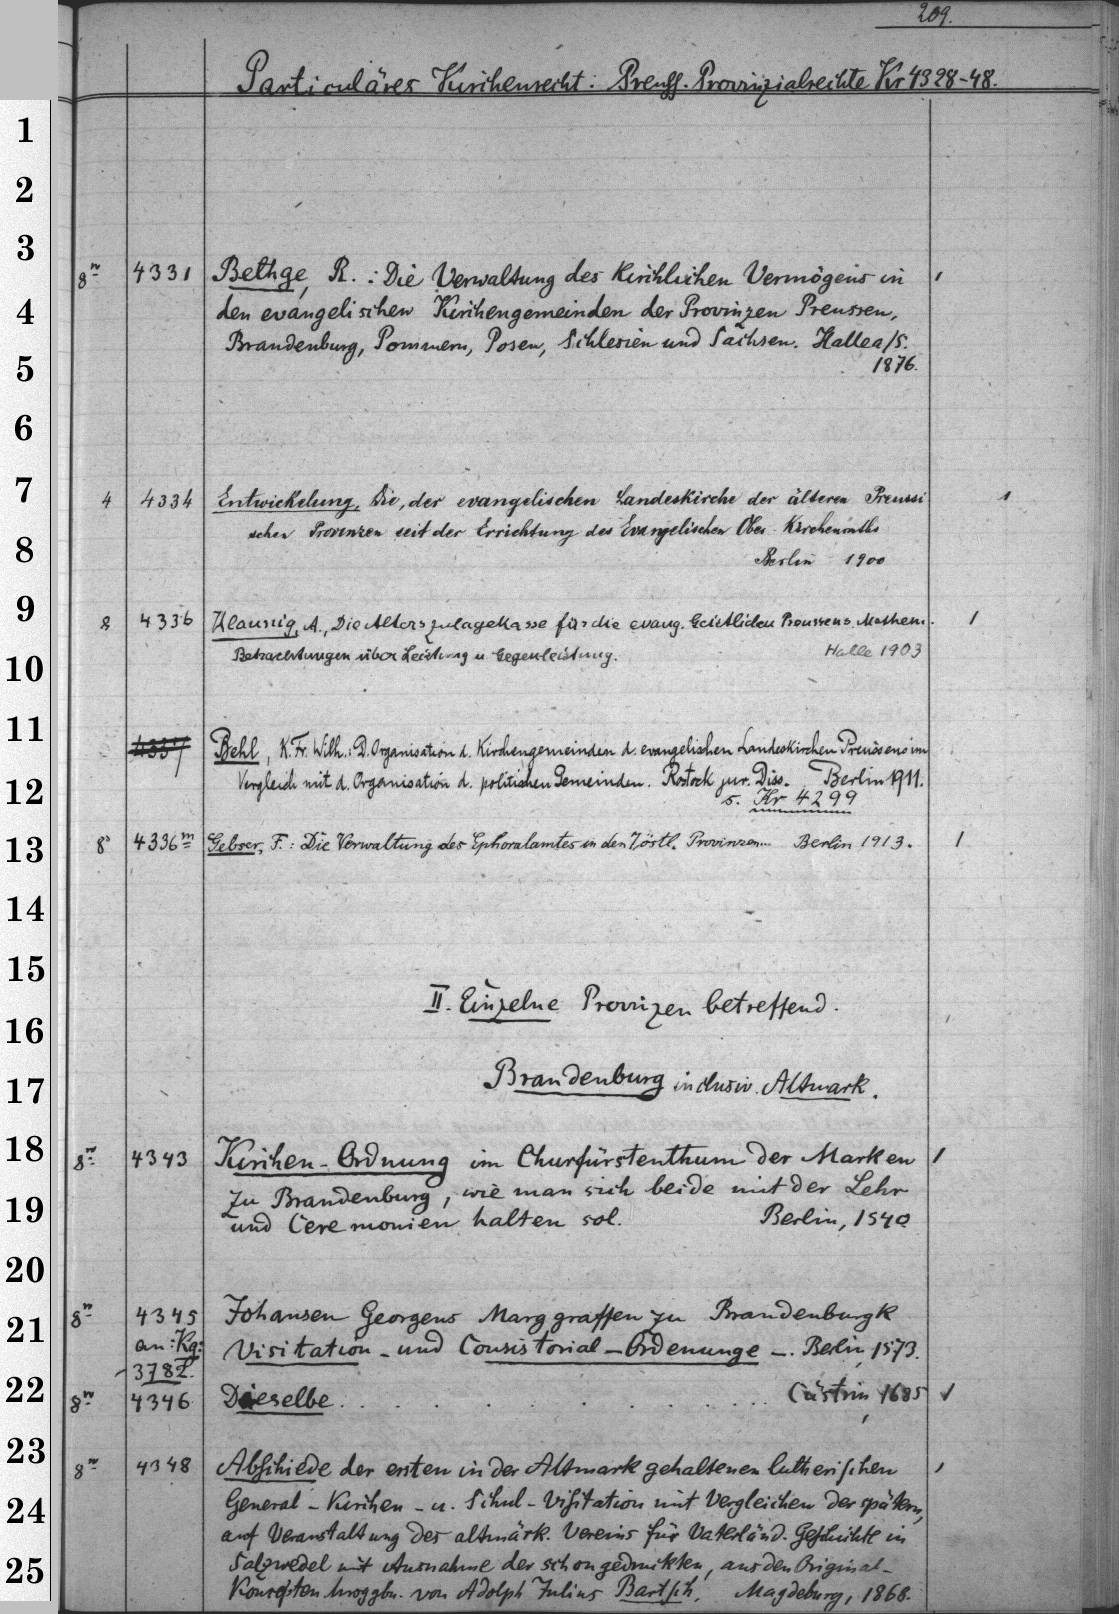 209.
Particuläres Kirchenrecht: Preuss. Provinzialrechte Kr 4328-48.
1
2
3
8º 4331 Bethge, R.: Die Verwaltung des kirchlichen Vermögens in
4
den evangelischen Kirchengemeinden der Provinzen Preussen,
Brandenburg, Pommern, Posen, Schlesien und Sachsen. Halle a/S.
5
1876.
6
7
4 4334 Entwickelung, Die, der evangelischen Landeskirche der älteren Preussi
schen Provinzen seit der Errichtung des Evangelischen Ober-Kirchenraths
8
Berlin 1900
9
8 4336 Klaunig, A., Die Alterszulagekasse für die evang. Geistlichen Preussens. Mathem.
10
Betrachtungen über Leistung u Gegenleistung. Halle 1903
11
4337 Behl, K. Fr. Wilh.: D. Organisation d. Kirchengemeinden d. evangelischen Landeskirchen Preußens im
12
Vergleich mit d. Organisation d. politischen Gemeinden. Rostock jur. Diss. Berlin 1911.
s. Kr 4299
13
8º 4336m Gebser, F.: Die Verwaltung des Ephoralamtes in den 7 östl. Provinzen... Berlin 1913.
14
15
16
II. Einzelne Provinzen betreffend.
17
Brandenburg inclusiv. Altmark.
18
8º 4343 Kirchen-Ordnung im Churfürstenthum der Marken
zu Brandenburg, wie man sich beide mit der Lehr
19
und Ceremonien halten sol. Berlin, 1540
20
21
8º 4345 Johansen Georgens Marggraffen zu Brandenburgk
an: Kg: Visitation- und Consistorial-Ordenunge -. Berlin, 1573.
3782.
22
8º 4346 Dieselbe . . . . . . . . . . . . Cüstrin, 1685
23
8º 4348 Abschiede der ersten in der Altmark gehaltenen lutherischen
24
General-Kirchen- u. Schul-Visitation mit Vergleichen der spätern,
auf Veranstaltung des altmärk. Vereins für Vaterländ. Geschichte in
25
Salzwedel mit Ausnahme der schon gedruckten, aus den Original-
Konzepten hrsggbn. von Adolph Julius Bartsch. Magdeburg, 1868.